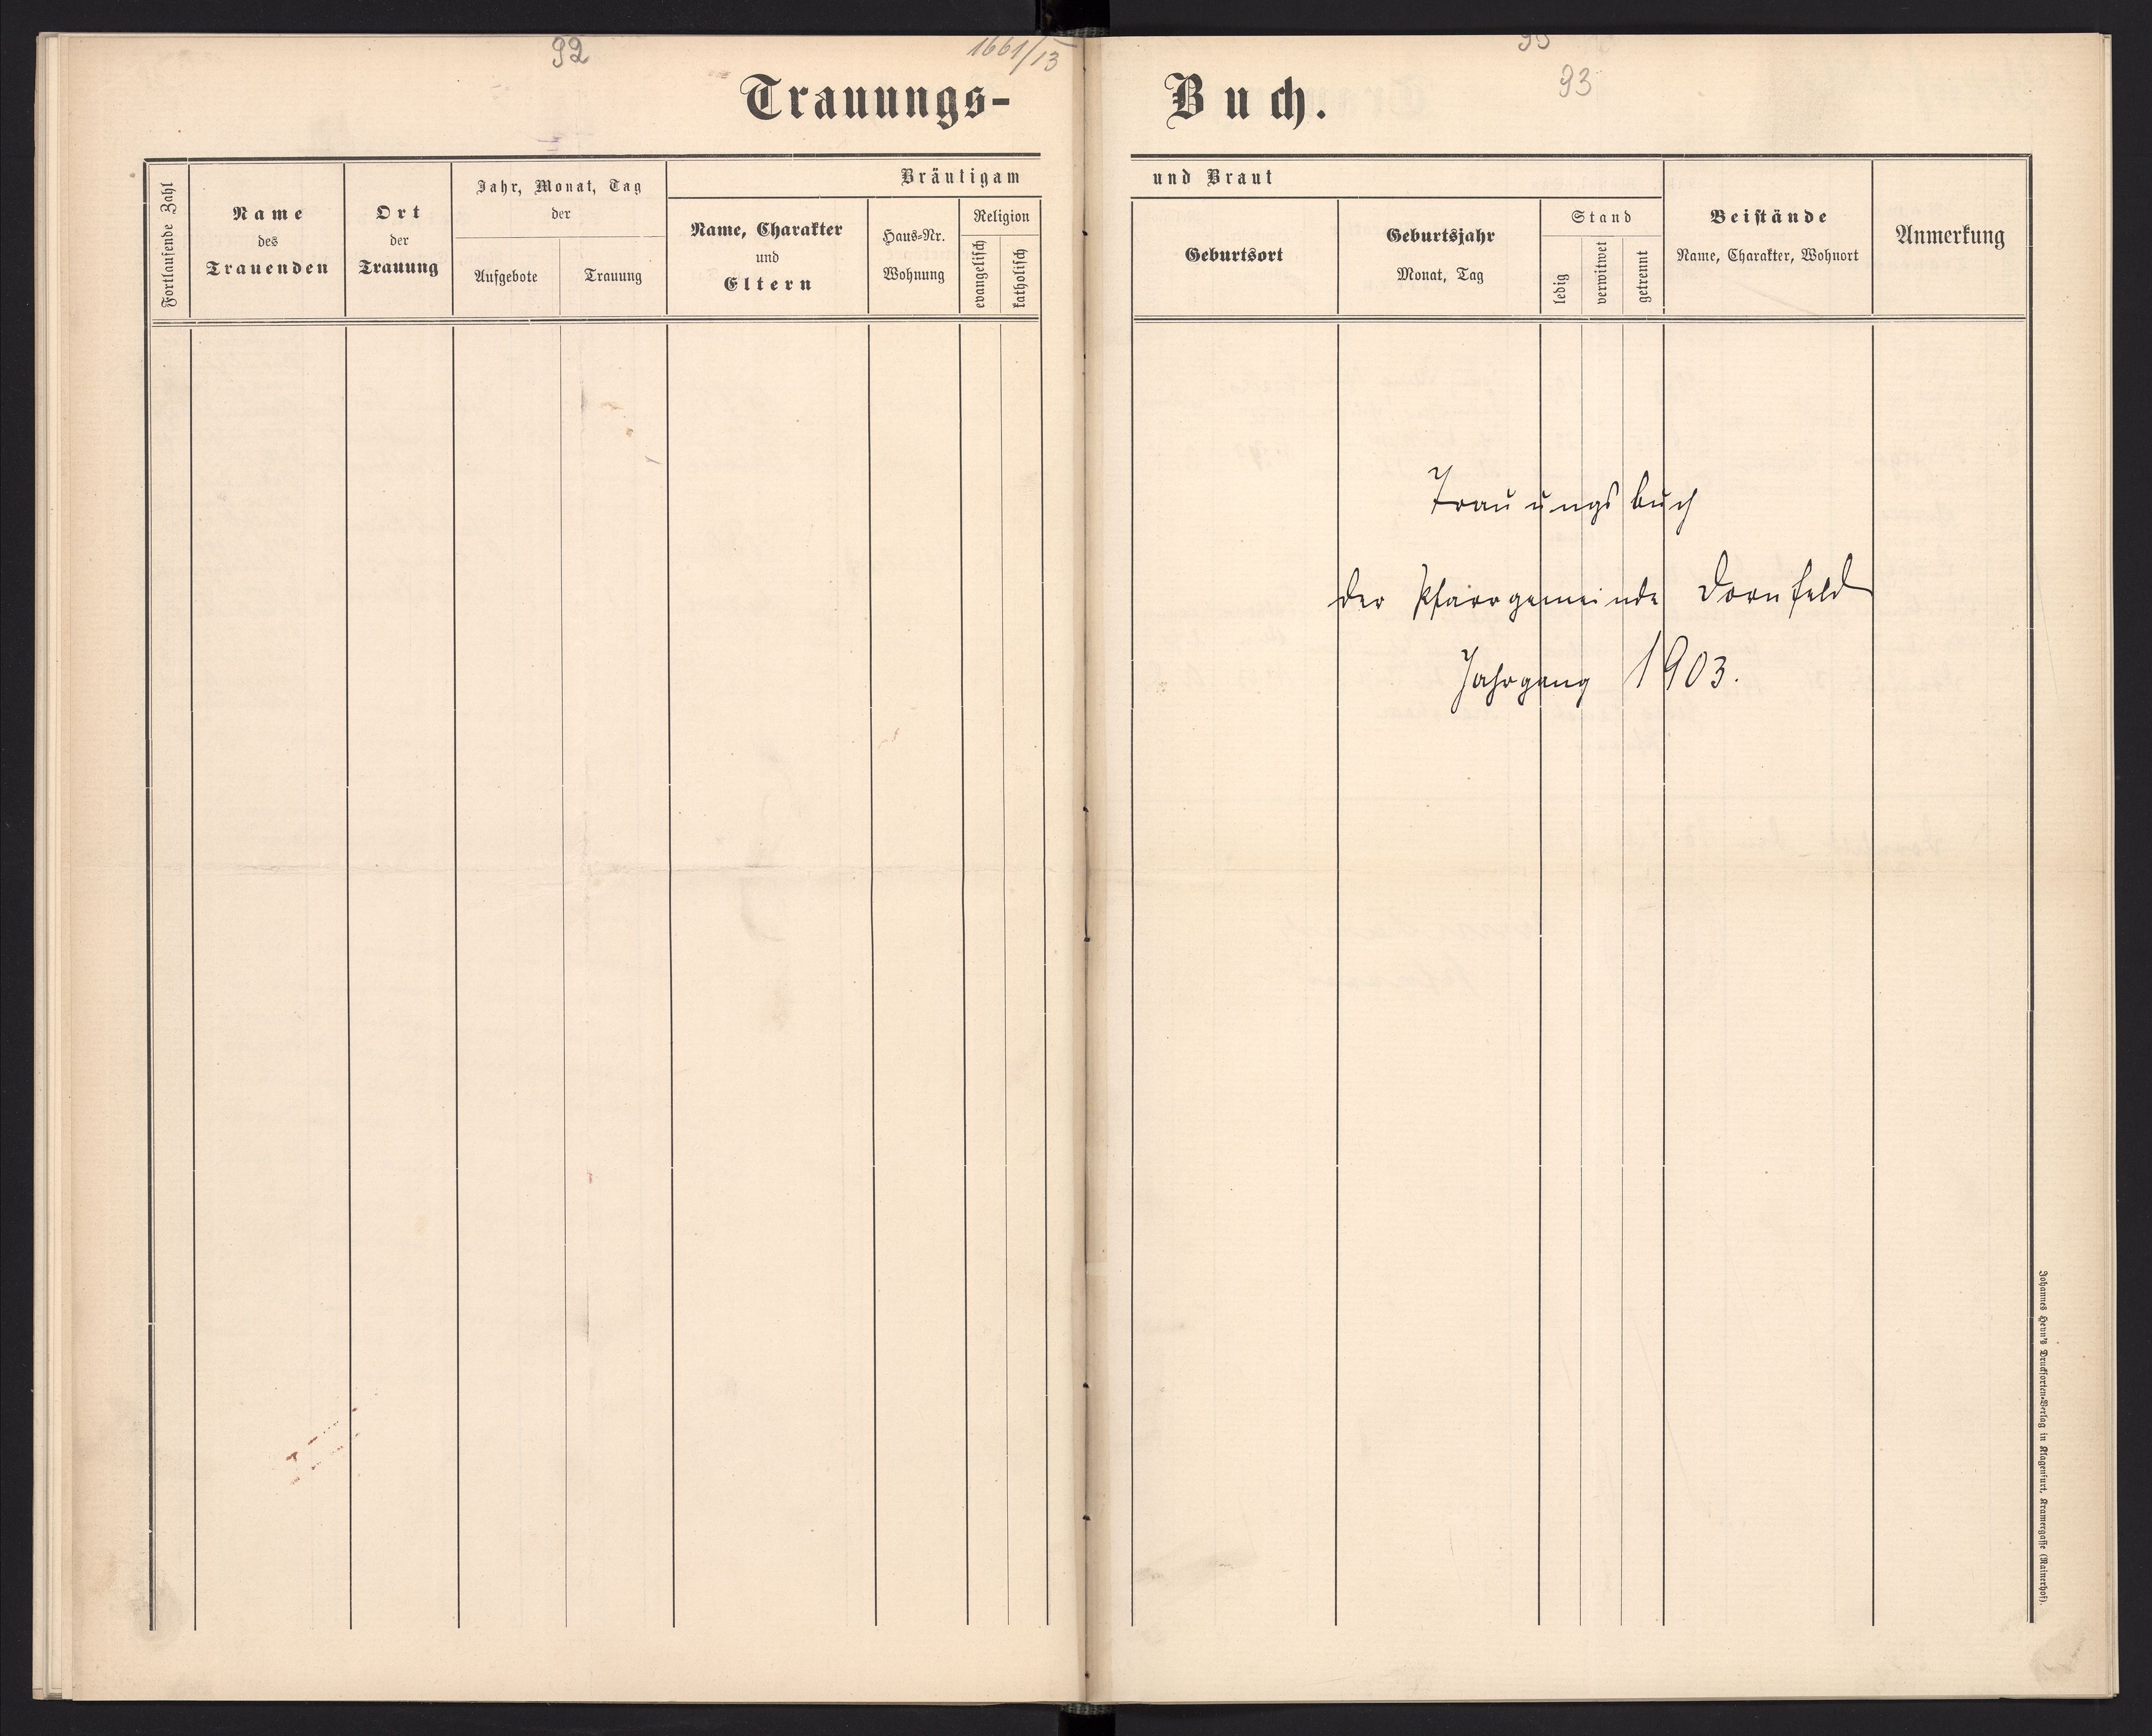 92
1661/13
Trauungs-
Fortlaufende Zahl
Name
des
Trauenden
Ort
der
Trauung
Jahr, Monat, Tag
der
Aufgebote
Trauung
Bräutigam
Name, Charakter
und
Eltern
Haus-Nr.
Wohnung
Religion
evangelisch
katholisch
93
Buch.
und Braut
Geburtsort
Geburtsjahr
Monat, Tag
Stand
ledig
verwitwet
getrennt
Beistände
Name, Charakter, Wohnort
Anmerkung
Trauungsbuch
der Pfarrgemeinde Dornfeld
Jahrgang 1903.
Johannes Heyn's Drucksorten-Verlag in Klagenfurt, Kramergasse (Rainerhof).